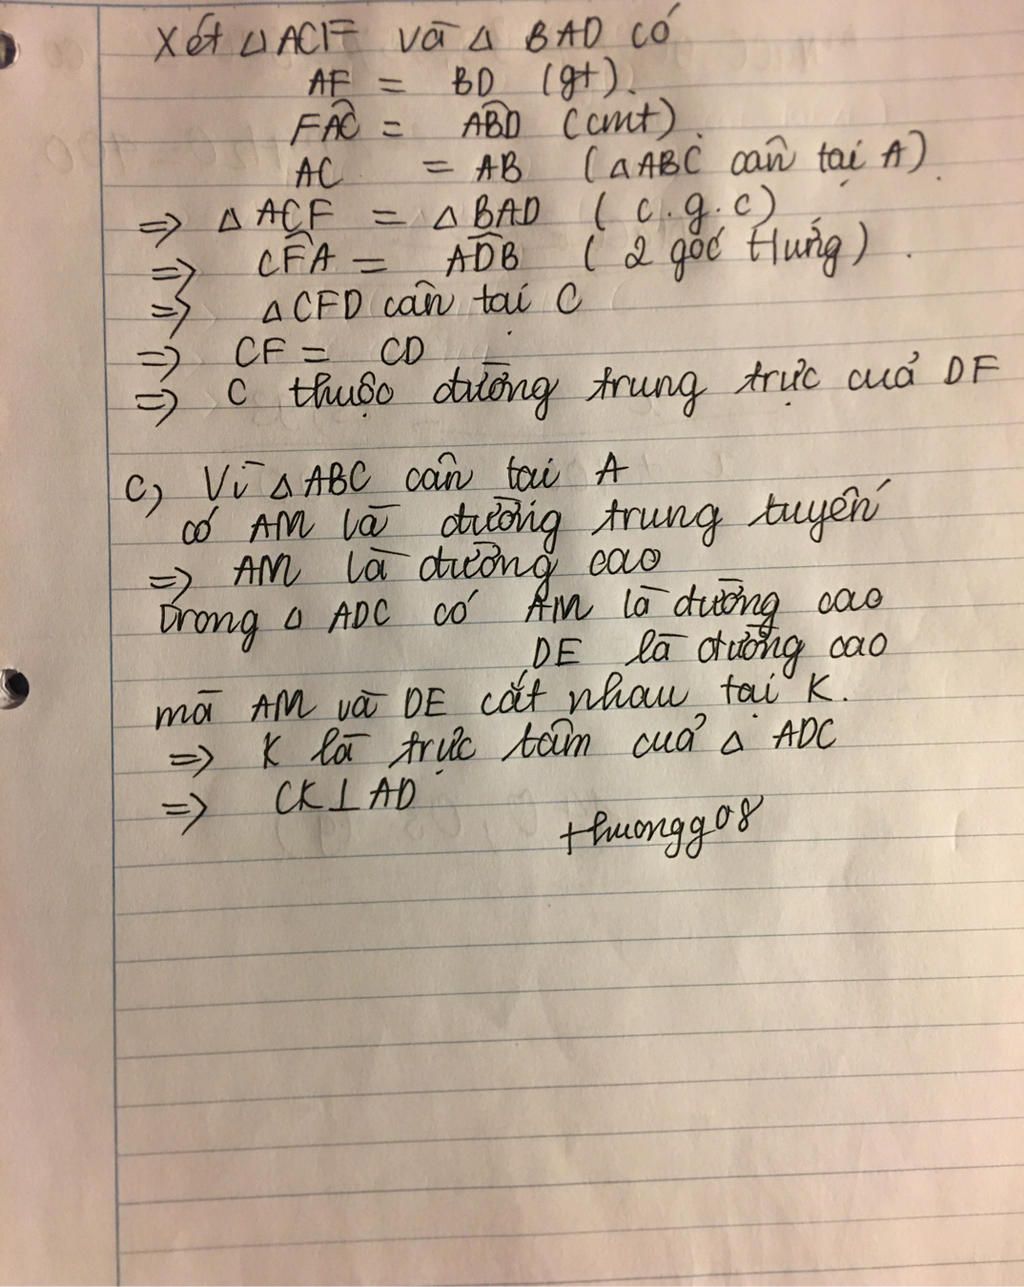 Xét △ACF và △ BAD có
AF = BD (gt).
FAC^ = ABD^ (cmt).
AC = AB (△ABC cân tại A).
=> △ ACF = △ BAD ( c.g.c)
=> CFA^ = ADB^ ( 2 góc t/ứng) .
=> △CFD cân tại C
=> CF = CD
=> C thuộc đường trung trực của DF
c) Vì △ABC cân tại A
có AM là đường trung tuyến
=> AM là đường cao
Trong △ ADC có AM là đường cao
DE là đường cao
mà AM và DE cắt nhau tại K.
=> K là trực tâm của △ ADC
=> CK⊥AD
thuongg08